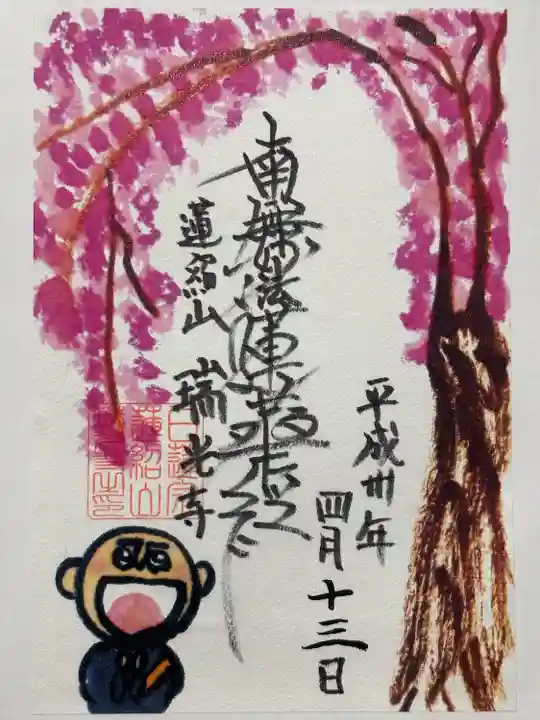 平成卅年
四月十三日
南無妙法蓮華経
蓮紹山 瑞光寺
日蓮宗
蓮紹山